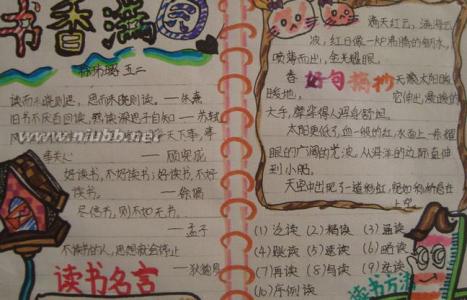 书香满园
五二
读而未晓则思，思而未晓则读。——朱熹
旧书不厌百回读，熟读深思子自知——苏轼
天下事，事
事关心 ——顾宪成
好读书，不好读书；好读书，不好
读书。 ——徐渭
尽信书，则不如无书。
——孟子
不读书的人，思想就会停止
——狄德罗
读书名言
满天红云，满海金
波，红日像一炉沸腾的钢水，
喷薄而出，金光耀眼。
好句摘抄
春天太阳暖
暖地，它伸出暖暖的
大手，摸得人浑身舒坦。
太阳更低了，血一般的红，水面上一条耀
眼的广阔的光波，从海洋的边际直伸
到小船
天空中出现了一道彩虹
(1) 泛读 (2) 精读 (3) 通读
(4) 跳读 (5) 速读 (6) 略读
(7) 再读 (8) 写读 (9)
(10) 序例读
读书方法
www.niubb.net